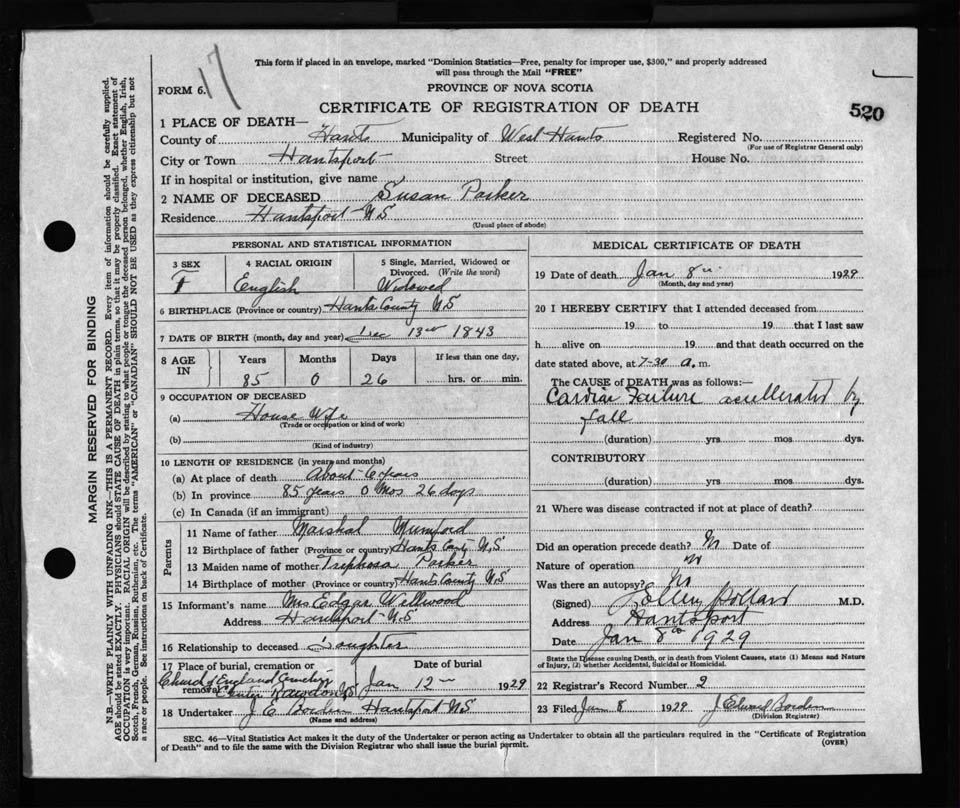 17
This form if placed in an envelope, marked "Dominion Statistics—Free, penalty for improper use, $300," and properly addressed
will pass through the Mail "FREE"
FORM 6.
PROVINCE OF NOVA SCOTIA
CERTIFICATE OF REGISTRATION OF DEATH
520
1 PLACE OF DEATH—
County of Hants Municipality of West Hants Registered No.
(For use of Registrar General only)
City or Town Hantsport Street House No.
If in hospital or institution, give name
2 NAME OF DECEASED Susan Parker
Residence Hantsport N S
(Usual place of abode)
PERSONAL AND STATISTICAL INFORMATION
3 SEX 4 RACIAL ORIGIN 5 Single, Married, Widowed or
Divorced. (Write the word)
F English Widowed
6 BIRTHPLACE (Province or country) Hants County N S
7 DATE OF BIRTH (month, day and year) Dec 13th 1843
8 AGE IN Years Months Days If less than one day,
85 0 26 hrs. or min.
9 OCCUPATION OF DECEASED
(a) House Wife
(Trade or occupation or kind of work)
(b)
(Kind of industry)
10 LENGTH OF RESIDENCE (in years and months)
(a) At place of death About 6 years
(b) In province 85 years 0 Mos 26 days
(c) In Canada (if an immigrant)
Parents
11 Name of father Marshal Mumford
12 Birthplace of father (Province or country) Hants Conty N S
13 Maiden name of mother Triphosa Parker
14 Birthplace of mother (Province or country) Hants County N S
15 Informant's name Mrs Edgar Wellwood
Address Hantsport N S
16 Relationship to deceased Daughter
17 Place of burial, cremation or removal Date of burial
Church of England Cemetery
Center Rawdon N S Jan 12th 1929
18 Undertaker J E Borden Hantsport N S
(Name and address)
MEDICAL CERTIFICATE OF DEATH
19 Date of death Jan 8th 1929
(Month, day and year)
20 I HEREBY CERTIFY that I attended deceased from
19 to 19 that I last saw
h alive on 19 and that death occurred on the
date stated above, at 7-30 a. m.
The CAUSE OF DEATH was as follows:—
Cardiac Failure accellerated by
fall
(duration) yrs mos dys.
CONTRIBUTORY
(duration) yrs. mos. dys.
21 Where was disease contracted if not at place of death?
Did an operation precede death? No Date of
Nature of operation no
Was there an autopsy? No
(Signed) M.D.
Address Hantsport
Date Jan 8th 1929
State the Disease causing Death, or in death from Violent Causes, state (1) Means and Nature
of Injury, (2) whether Accidental, Suicidal or Homicidal.
22 Registrar's Record Number 2
23 Filed Jan 8 1929 J Edward Borden
(Division Registrar)
SEC. 46—Vital Statistics Act makes it the duty of the Undertaker or person acting as Undertaker to obtain all the particulars required in the "Certificate of Registration
of Death" and to file the same with the Division Registrar who shall issue the burial permit.
(OVER)
MARGIN RESERVED FOR BINDING
N.B—WRITE PLAINLY WITH UNFADING INK—THIS IS A PERMANENT RECORD. Every item of information should be carefully supplied.
AGE should be stated EXACTLY. PHYSICIANS should STATE CAUSE OF DEATH in plain terms, so that it may be properly classified. Exact statement of
OCCUPATION is very important. RACIAL ORIGIN will be described by stating to what people or tongue the deceased person belonged, whether English, Irish,
Scotch, French, German, Russian, Ruthenian, etc. The terms "AMERICAN" or "CANADIAN" SHOULD NOT BE USED as they express citizenship but not
a race or people. See instructions on back of Certificate.